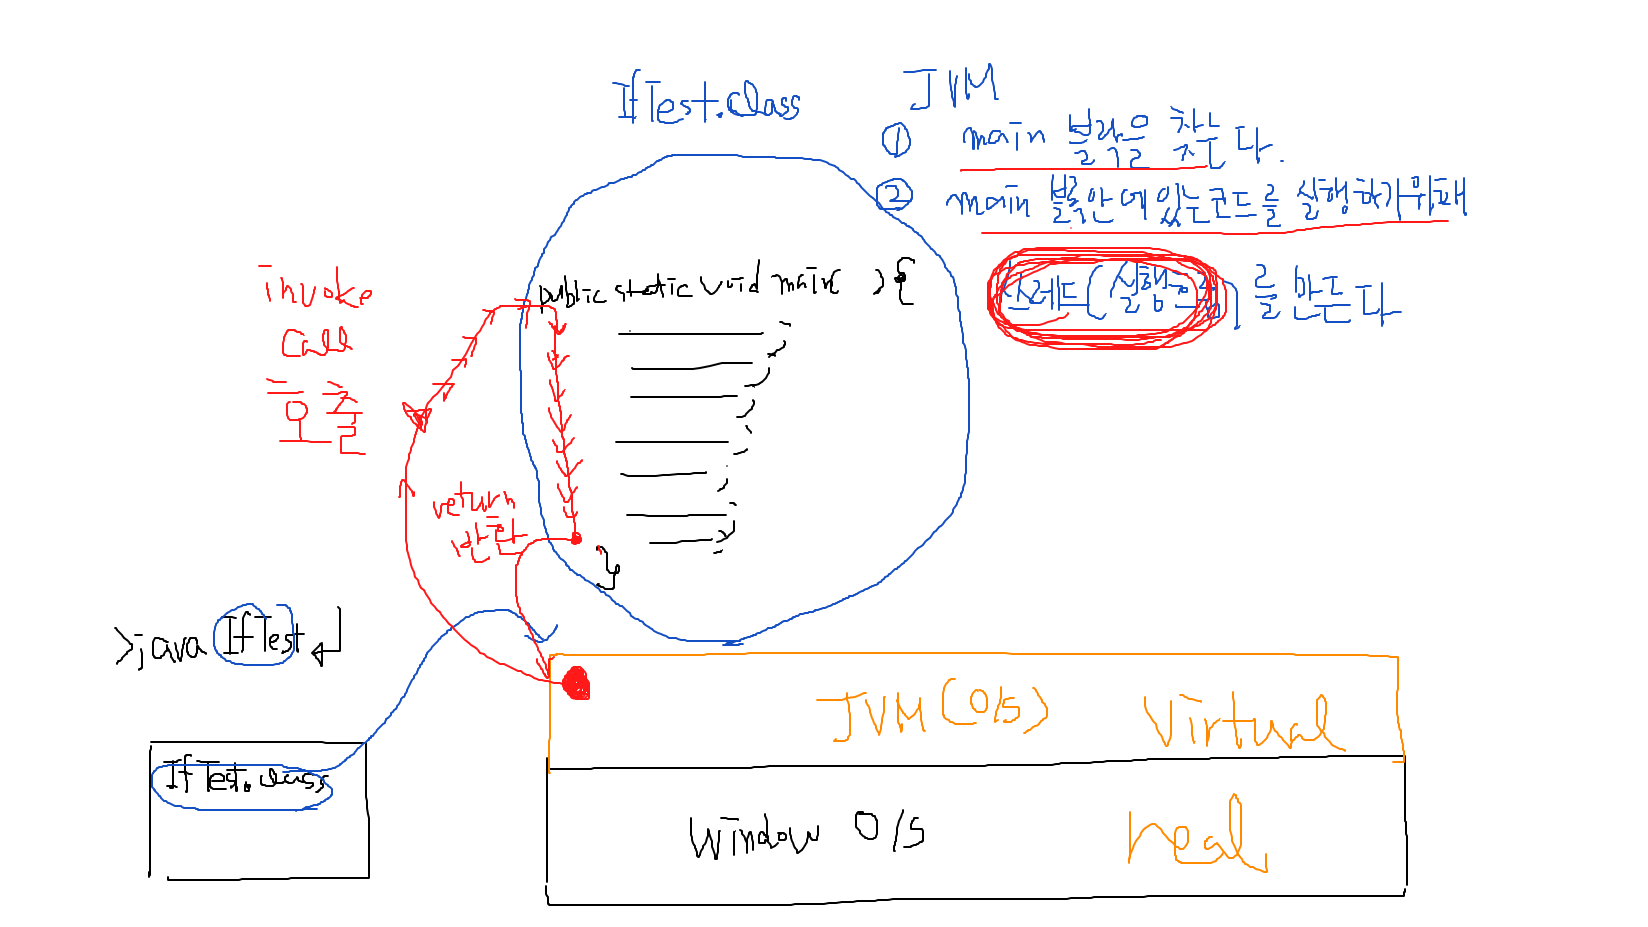 IfTest.class
JVM
① main 블락을 찾는다.
② main 블록안에있는코드를 실행하기위해
스레드(실행흐름)를 만든다
invoke
call
호출
public static void main( ) {
return
반환
}
>java IfTest
IfTest.class
JVM(O/S) Virtual
Window O/S real